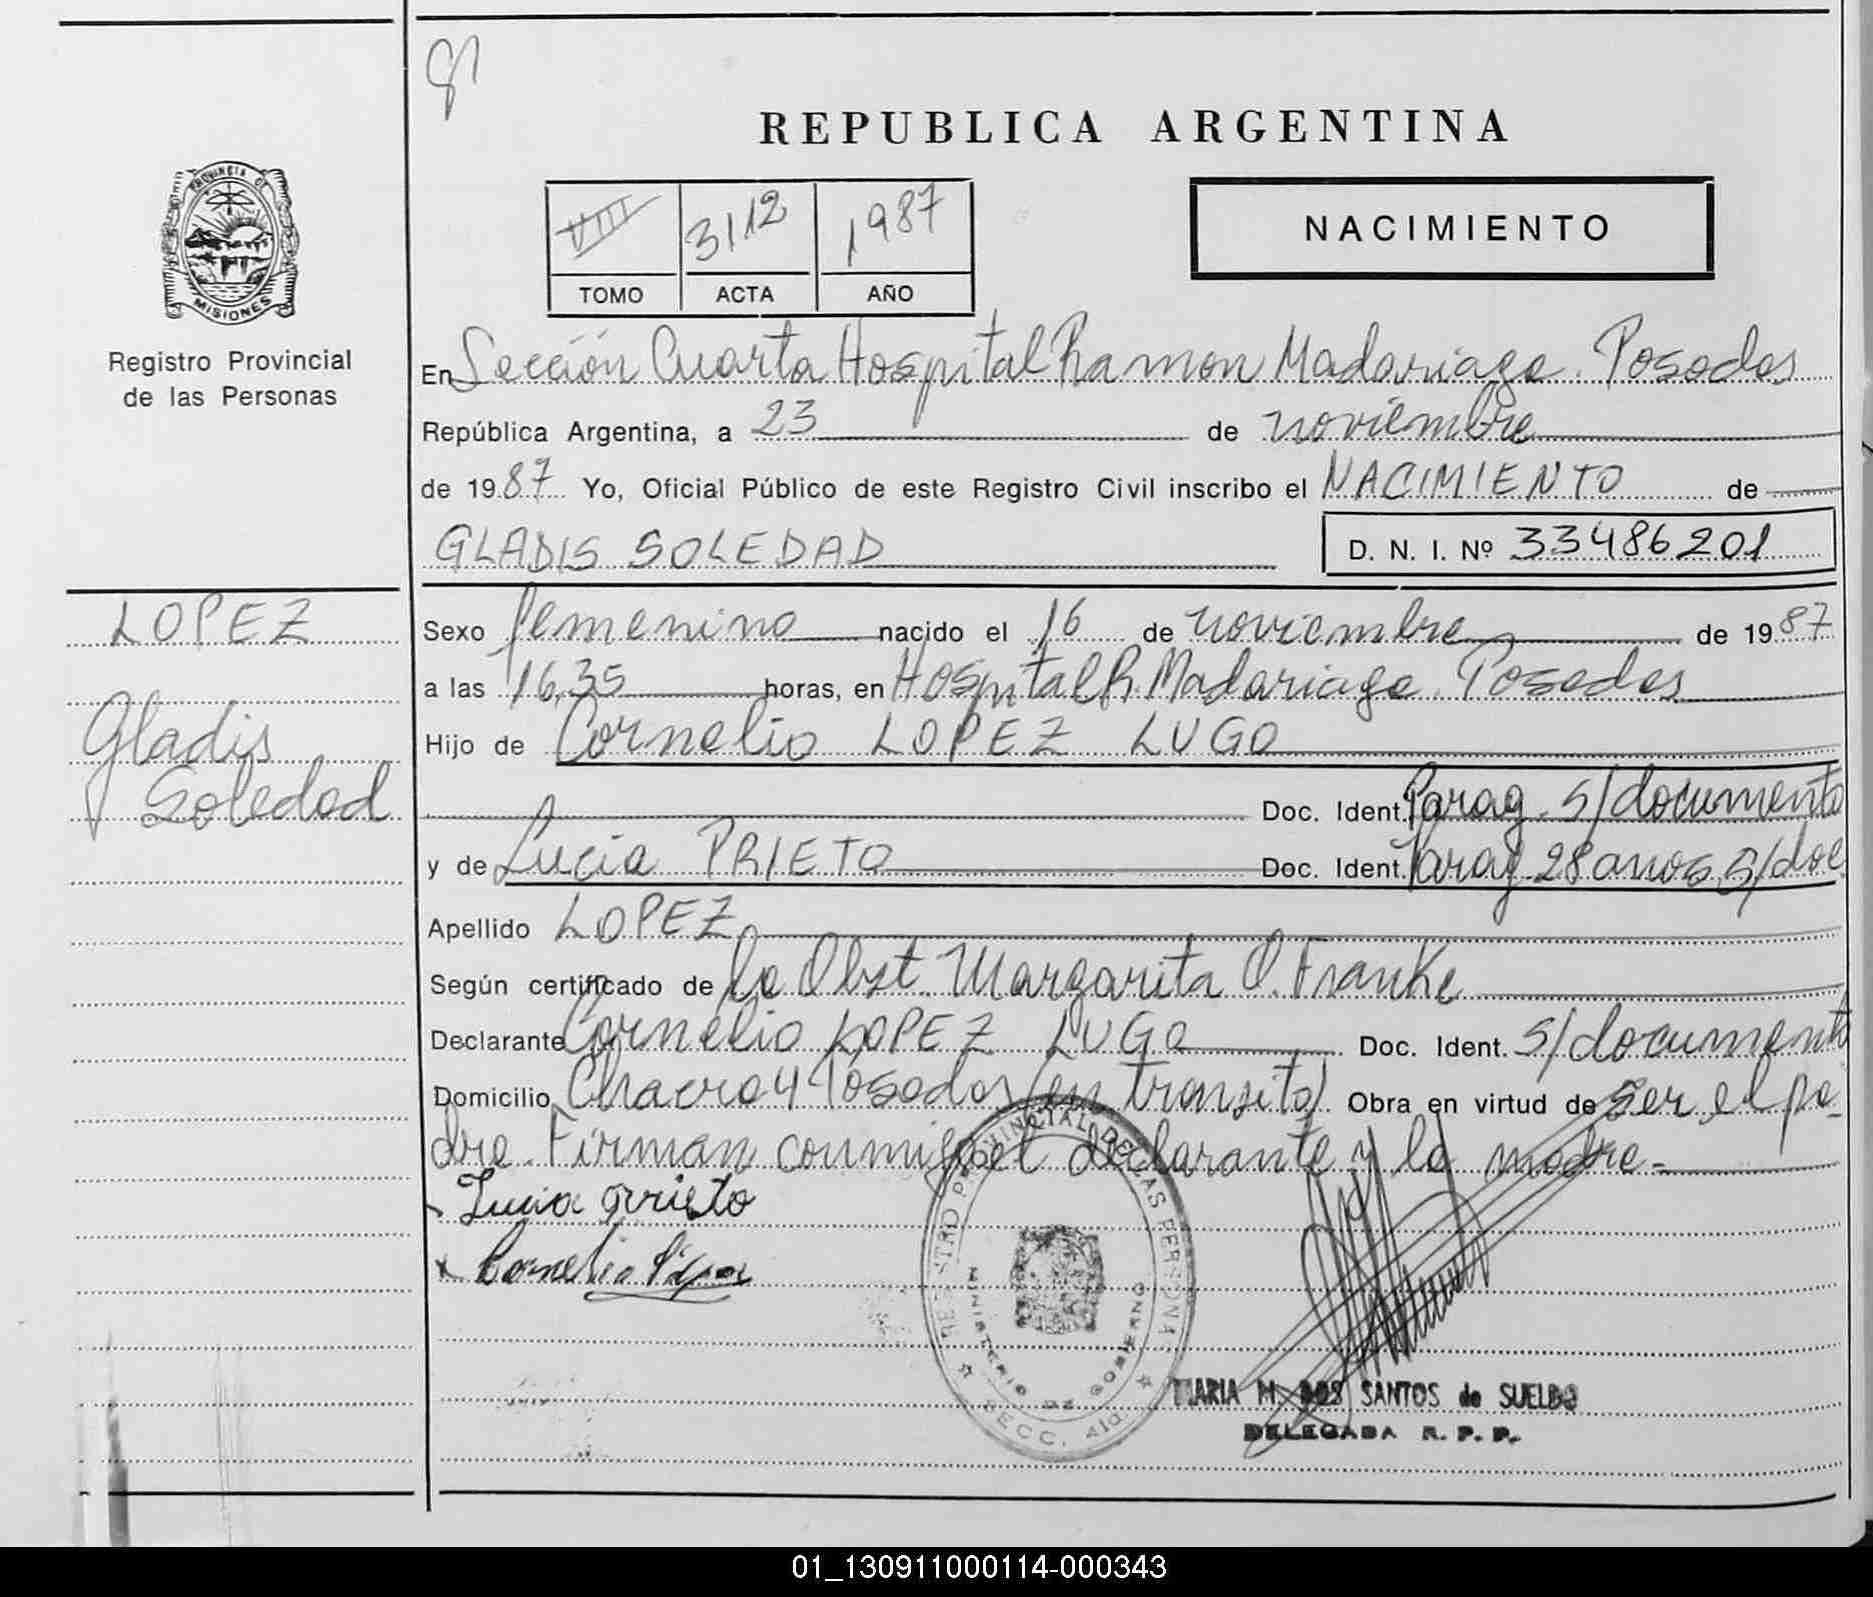 REPUBLICA ARGENTINA
PROVINCIA DE
MISIONES
Registro Provincial
de las Personas
VIII 3112 1987
TOMO ACTA AÑO
NACIMIENTO
En Sección Cuarta Hospital Ramon Madariaga. Posadas
República Argentina, a 23 de noviembre
de 1987 Yo, Oficial Público de este Registro Civil inscribo el NACIMIENTO de
GLADIS SOLEDAD
D. N. I. Nº 33486201
LOPEZ
Gladis
Soledad
Sexo femenino nacido el 16 de noviembre de 1987
a las 16,35 horas, en Hospital R. Madariaga. Posadas
Hijo de Cornelio LOPEZ LUGO
Doc. Ident. Parag. s/documento
y de Lucia PRIETO Doc. Ident. Parag. 28 anos s/doc
Apellido LOPEZ
Según certificado de la Obst. Margarita O. Franke
Declarante Cornelio LOPEZ LUGO Doc. Ident. s/documento
Domicilio Chacra 4 Posadas (en transito) Obra en virtud de ser el pa-
dre. Firman conmigo el declarante y la madre.-
Lucia Prieto
x Cornelio López
REGISTRO PROVINCIAL DE LAS PERSONAS
MINISTERIO DE GOBIERNO
SECC. 4ta
MARIA M. DOS SANTOS de SUELDO
DELEGADA R. P. P.
01_130911000114-000343